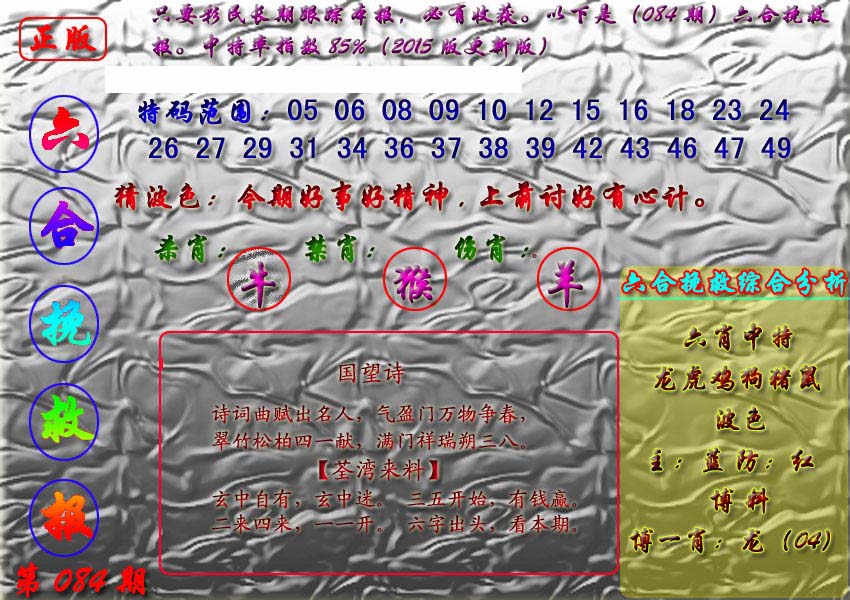 正版
只要彩民长期跟踪本报，必有收获。以下是（084期）六合挽救
报。中特率指数85%（2015版更新版）
六合挽救报
第084期
特码范围：05 06 08 09 10 12 15 16 18 23 24
26 27 29 31 34 36 37 38 39 42 43 46 47 49
猜波色：今期好事好精神，上前讨好有心计。
杀肖：牛 禁肖：猴 伤肖：羊
国望诗
诗词曲赋出名人，气盈门万物争春，
翠竹松柏四一献，满门祥瑞朔三八。
【荃湾来料】
玄中自有，玄中迷。 三五开始，有钱赢。
二来四来，一一开。 六字出头，看本期。
六合挽救综合分析
六肖中特
龙虎鸡狗猪鼠
波色
主：蓝防：红
博料
博一肖：龙（04）